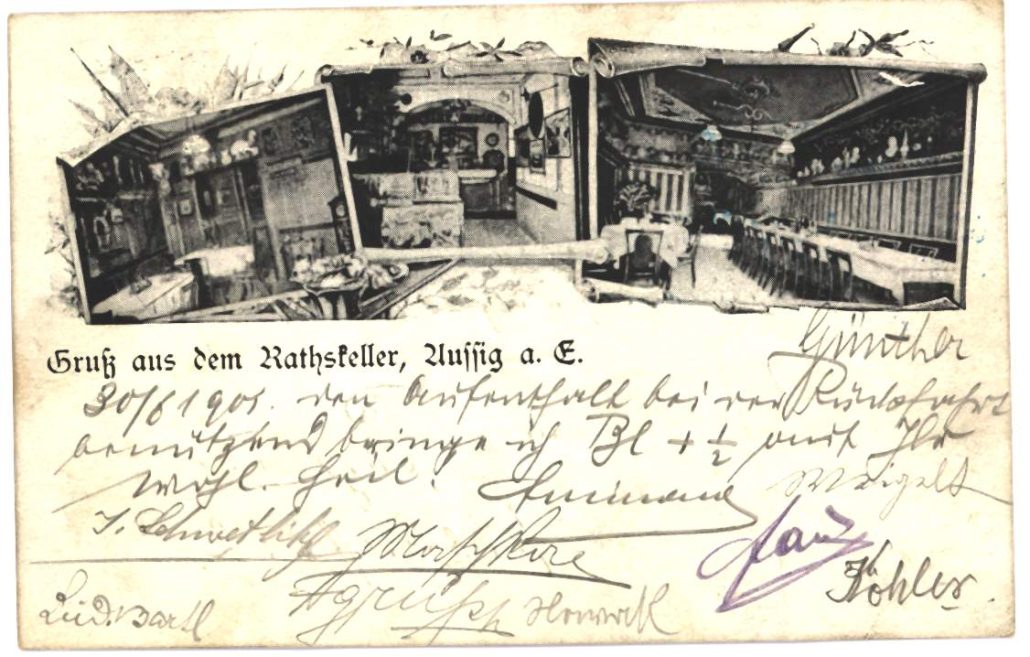 Gruß aus dem Rathskeller, Aussig a. E.
Günther
30/6 1901. den Aufenthalt bei der Rückfahrt
benützend bringe ich Bl + 1/2 auf Ihr
Wohl. Heil!
Weigelt
Maschke
Köhler
Lud. Bartl
Nowak